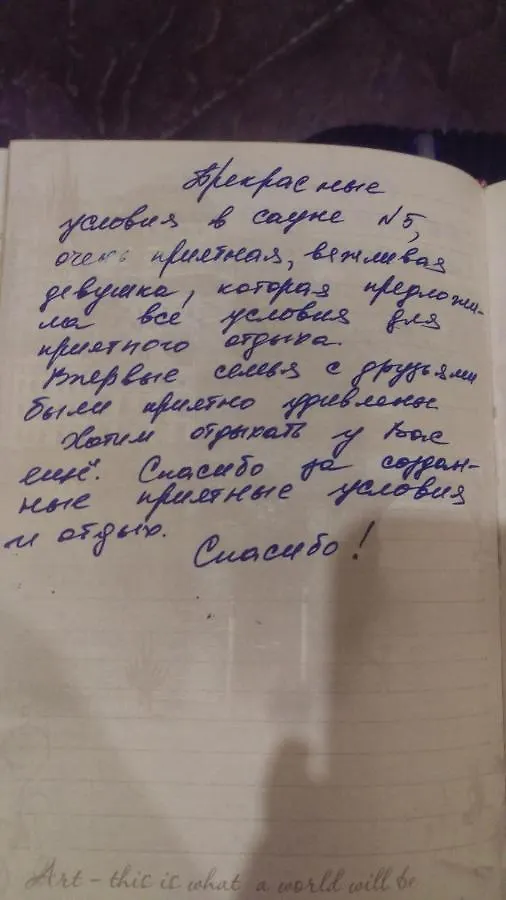 Прекрасные
условия в сауне №5,
очень приятная, вежливая
девушка, которая предложи-
ла все условия для
приятного отдыха.
Впервые семья с друзьями
были приятно удивлены
Хотим отдыхать у Вас
ещё. Спасибо за создан-
ные приятные условия
и отдых.
Спасибо!
Art - this is what a world will be